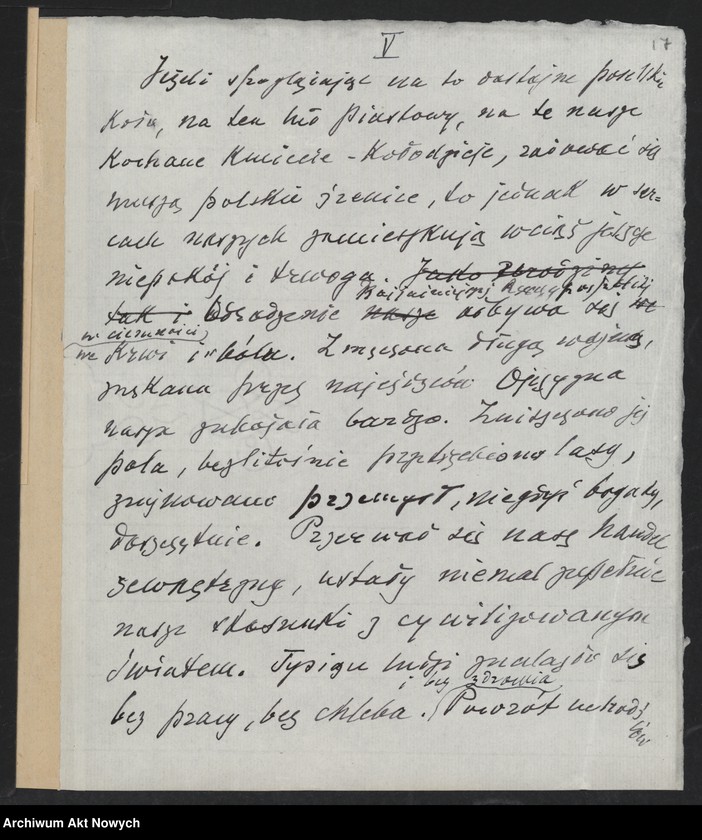 V
17
Jeżeli spoglądając na to dostojne poselskie
Koło, na ten huf Piastowy, na te nasze
Kochane Kmiecie - Kołodzieje, radować się
muszą polskie źrenice, to jednak w ser-
cach naszych zamieszkują wciąż jeszcze
niepokój i trwoga. Jako
tak i Odrodzenie nasze Najjaśniejszej Rzeczypospolitej odbywa się w
we Krwi i w bólu. w ciemności Zmęczona długą wojną,
nękana przez najeźdźców Ojczyzna
nasza zubożała bardzo. Zniszczono jej
pola, bezlitośnie przetrzebiono lasy,
zrujnowano przemysł, niegdyś bogaty,
doszczętnie. Przerwał się nasz handel
zewnętrzny, ustały niemal zupełnie
nasze stosunki z cywilizowanym
światem. Tysiące ludzi znalazło się
bez pracy, bez chleba i bez zdrowia. Powrót uchodź-
ców
Archiwum Akt Nowych